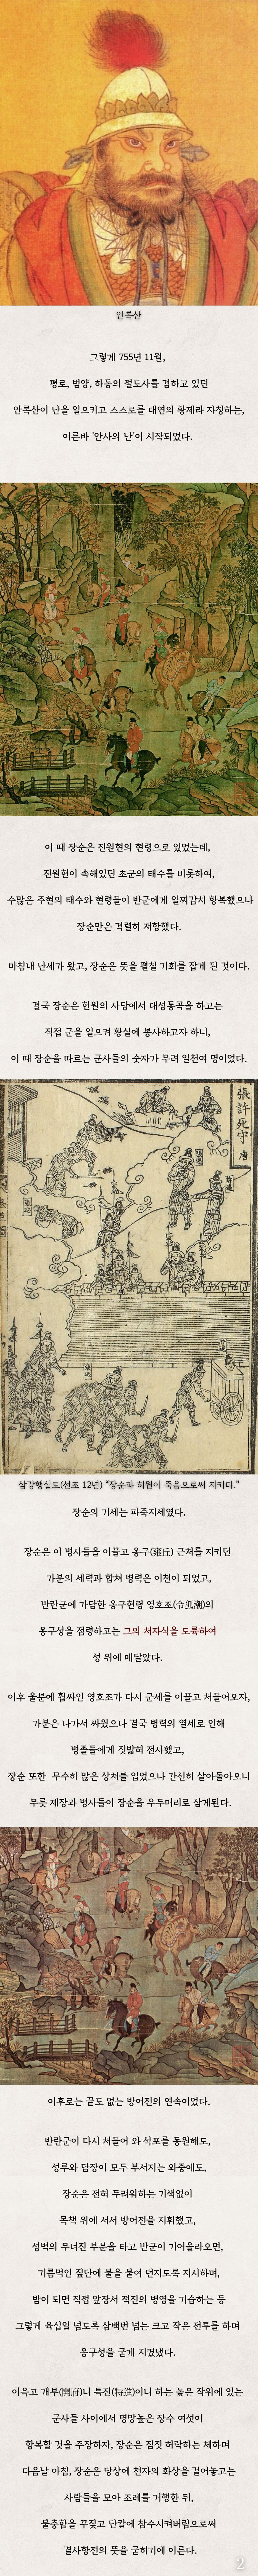 안록산
그렇게 755년 11월,
평로, 범양, 하동의 절도사를 겸하고 있던
안록산이 난을 일으키고 스스로를 대연의 황제라 자칭하는,
이른바 '안사의 난'이 시작되었다.
이 때 장순은 진원현의 현령으로 있었는데,
진원현이 속해있던 초군의 태수를 비롯하여,
수많은 주현의 태수와 현령들이 반군에게 일찌감치 항복했으나
장순만은 격렬히 저항했다.
마침내 난세가 왔고, 장순은 뜻을 펼칠 기회를 잡게 된 것이다.
결국 장순은 현원의 사당에서 대성통곡을 하고는
직접 군을 일으켜 황실에 봉사하고자 하니,
이 때 장순을 따르는 군사들의 숫자가 무려 일천여 명이었다.
張許死守 唐
삼강행실도(선조 12년) "장순과 허원이 죽음으로써 지키다."
장순의 기세는 파죽지세였다.
장순은 이 병사들을 이끌고 옹구(雍丘) 근처를 지키던
가분의 세력과 합쳐 병력은 이천이 되었고,
반란군에 가담한 옹구현령 영호조(令狐潮)의
옹구성을 점령하고는 그의 처자식을 도륙하여
성 위에 매달았다.
이후 울분에 휩싸인 영호조가 다시 군세를 이끌고 쳐들어오자,
가분은 나가서 싸웠으나 결국 병력의 열세로 인해
병졸들에게 짓밟혀 전사했고,
장순 또한 무수히 많은 상처를 입었으나 간신히 살아돌아오니
무릇 제장과 병사들이 장순을 우두머리로 삼게된다.
이후로는 끝도 없는 방어전의 연속이었다.
반란군이 다시 쳐들어 와 석포를 동원해도,
성루와 담장이 모두 부서지는 와중에도,
장순은 전혀 두려워하는 기색없이
목책 위에 서서 방어전을 지휘했고,
성벽의 무너진 부분을 타고 반군이 기어올라오면,
기름먹인 짚단에 불을 붙여 던지도록 지시하며,
밤이 되면 직접 앞장서 적진의 병영을 기습하는 등
그렇게 육십일 넘도록 삼백번 넘는 크고 작은 전투를 하며
옹구성을 굳게 지켰냈다.
이윽고 개부(開府)니 특진(特進)이니 하는 높은 작위에 있는
군사들 사이에서 명망높은 장수 여섯이
항복할 것을 주장하자, 장순은 짐짓 허락하는 체하며
다음날 아침, 장순은 당상에 천자의 화상을 걸어놓고는
사람들을 모아 조례를 거행한 뒤,
불충함을 꾸짖고 단칼에 참수시켜버림으로써
결사항전의 뜻을 굳히기에 이른다.
2